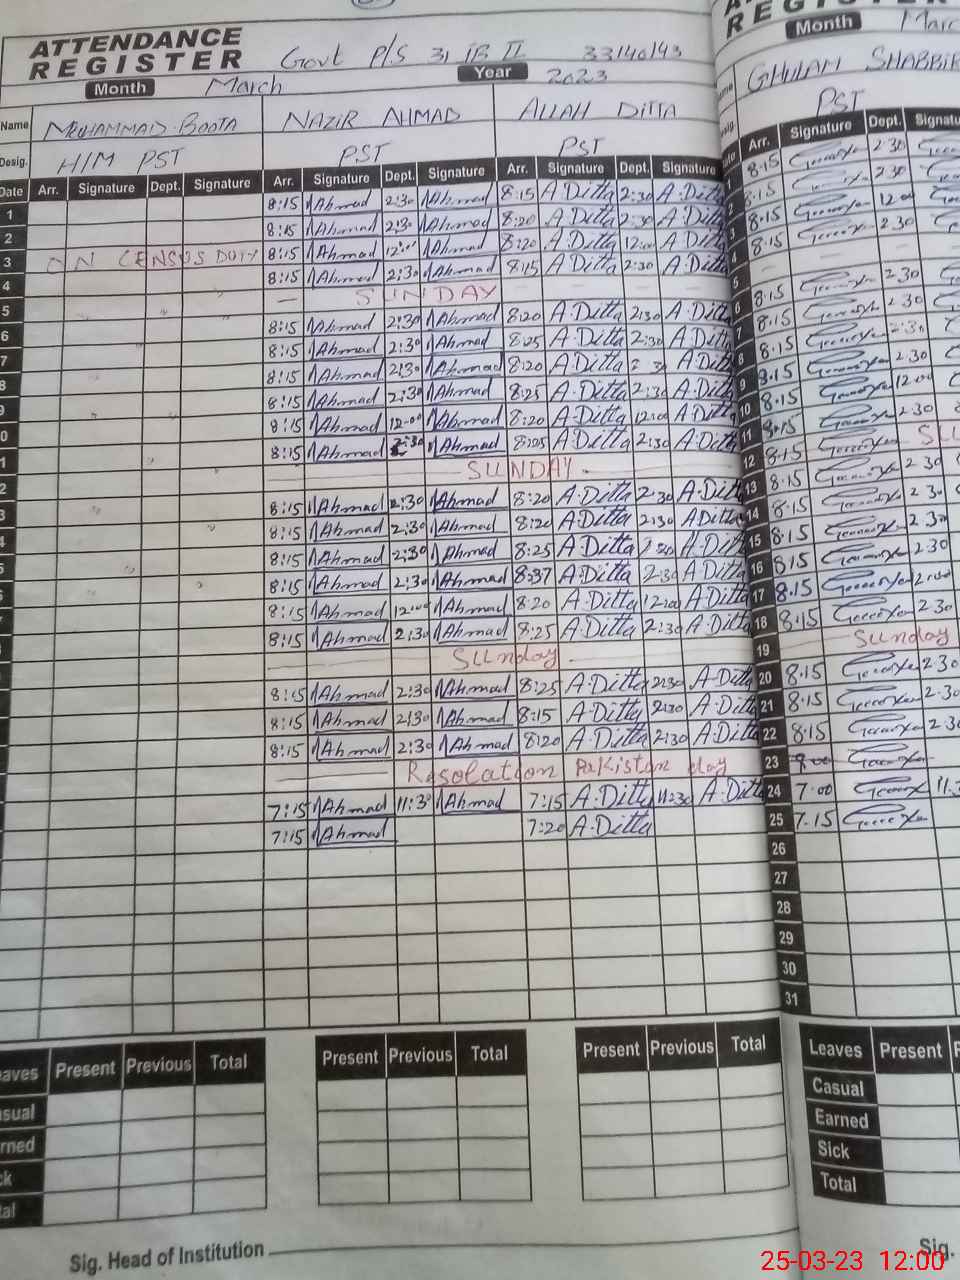 ATTENDANCE REGISTER Govt P/S 31 JB II 33140143
Month March Year 2023
Name MUHAMMAD BOOTA NAZIR AHMAD ALLAH DITTA
Desig. H/M PST PST PST
Date Arr. Signature Dept. Signature Arr. Signature Dept. Signature Arr. Signature Dept. Signature
1 8:15 Ahmad 2:30 Ahmad 8:15 A.Ditta 2:30 A.Ditta
2 8:15 Ahmad 2:30 Ahmad 8:20 A.Ditta 2:30 A.Ditta
3 ON CENSUS DUTY 8:15 Ahmad 12:00 Ahmad 8:20 A.Ditta 12:00 A.Ditta
4 8:15 Ahmad 2:30 Ahmad 8:15 A.Ditta 2:30 A.Ditta
5 SUNDAY
6 8:15 Ahmad 2:30 Ahmad 8:20 A.Ditta 2:30 A.Ditta
7 8:15 Ahmad 2:30 Ahmad 8:25 A.Ditta 2:30 A.Ditta
8 8:15 Ahmad 2:30 Ahmad 8:20 A.Ditta A.Ditta
9 8:15 Ahmad 2:30 Ahmad 8:25 A.Ditta 2:30 A.Ditta
10 8:15 Ahmad 12:00 Ahmad 8:20 A.Ditta 12:00 A.Ditta
11 8:15 Ahmad 2:30 Ahmad 8:25 A.Ditta 2:30 A.Ditta
12 SUNDAY
13 8:15 Ahmad 2:30 Ahmad 8:20 A.Ditta 2:30 A.Ditta
14 8:15 Ahmad 2:30 Ahmad 8:20 A.Ditta 2:30 A.Ditta
15 8:15 Ahmad 2:30 Ahmad 8:25 A.Ditta A.Ditta
16 8:15 Ahmad 2:30 Ahmad 8:37 A.Ditta 2:30 A.Ditta
17 8:15 Ahmad 12:00 Ahmad 8:20 A.Ditta 12:00 A.Ditta
18 8:15 Ahmad 2:30 Ahmad 8:25 A.Ditta 2:30 A.Ditta
19 Sunday
20 8:15 Ahmad 2:30 Ahmad 8:25 A.Ditta 2:30 A.Ditta
21 8:15 Ahmad 2:30 Ahmad 8:15 A.Ditta 2:30 A.Ditta
22 8:15 Ahmad 2:30 Ahmad 8:20 A.Ditta 2:30 A.Ditta
23 Resolation Pakistan day
24 7:15 Ahmad 11:30 Ahmad 7:15 A.Ditta 11:30 A.Ditta
25 7:15 Ahmad 7:20 A.Ditta
26
27
28
29
30
31
Leaves Present Previous Total Present Previous Total Present Previous Total
Casual
Earned
Sick
Total
Sig. Head of Institution
REGISTER
Month March
GHULAM SHABBIR
PST
Arr. Signature Dept. Signatu
8:15 2:30
8:15 2:30
8:15 12:00
8:15 2:30
8:15 2:30
8:15 2:30
8:15 2:30
8:15 2:30
8:15 12:00
8:15 2:30
SU
8:15 2:30
8:15 2:30
8:15 2:30
8:15 2:30
8:15 12:00
8:15 2:30
Sunday
8:15 2:30
8:15 2:30
8:15 2:30
8:00
7:00 11:3
7:15
Leaves Present
Casual
Earned
Sick
Total
Sig.
25-03-23 12:00